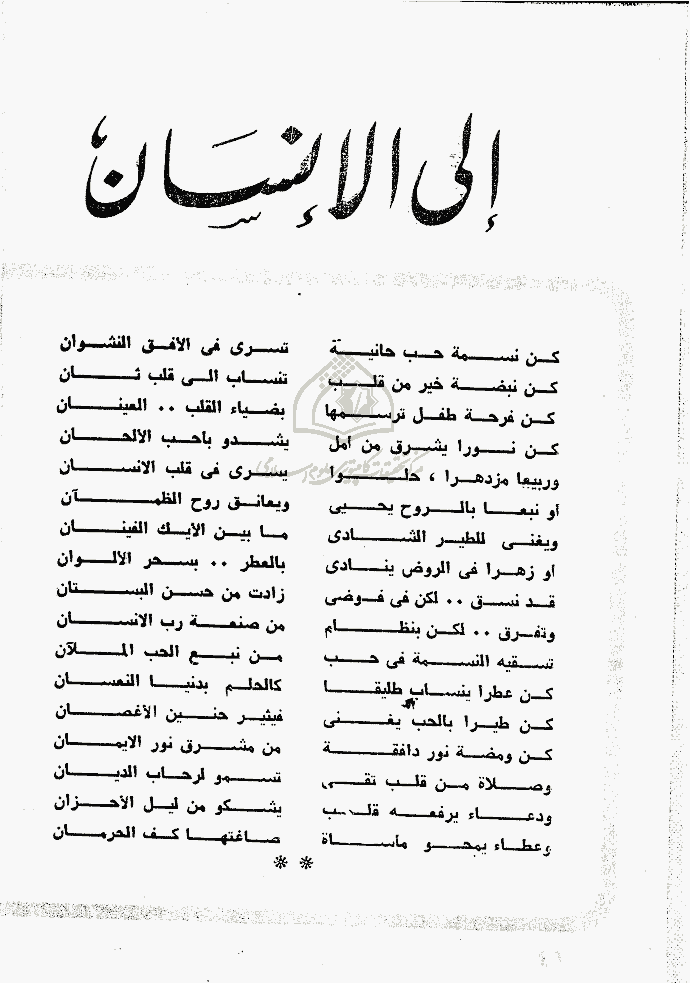 إلى الإنسان
كن نسمة حب حانية تسرى فى الأفق النشوان
كن نبضة خير من قلب تنساب الى قلب ثان
كن فرحة طفل ترسمها بضياء القلب .. العينان
كن نورا يشرق من أمل يشدو بأحب الألحان
وربيعا مزدهرا ، حلوا يسرى فى قلب الانسان
او نبعا بالروح يحيى ويعانق روح الظمآن
ويغنى للطير الشادى ما بين الأيك الفينان
او زهرا فى الروض ينادى بالعطر .. بسحر الألوان
قد نسق .. لكن فى فوضى زادت من حسن البستان
وتفرق .. لكن بنظام من صنعة رب الانسان
تسقيه النسمة فى حب من نبع الحب الملآن
كن عطرا ينساب طليقا كالحلم بدنيا النعسان
كن طيرا بالحب يغنى فيثير حنين الأغصان
كن ومضة نور دافقة من مشرق نور الايمان
وصلاة من قلب تقى تسمو لرحاب الديان
ودعاء يرفعه قلب يشكو من ليل الأحزان
وعطاء يمحو مأساة صاغتها كف الحرمان
※ ※